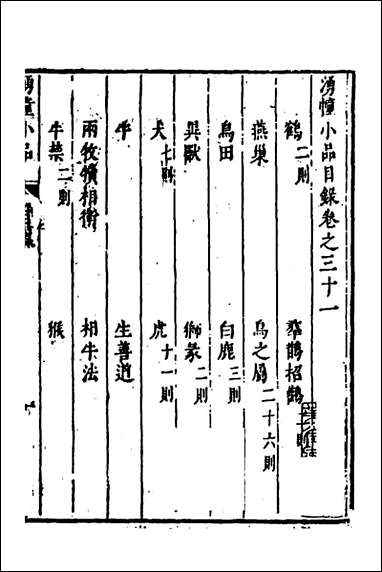 湧幢小品目錄卷之三十一
鶴二則
鶴招鶴
燕巢
鳥之屬二十六則
鳥田
白鹿三則
異獸
獅彖二則
犬七則
虎十一則
牛
生善道
兩牧犢相衛
相牛法
牛禁二則
猴
湧幢小品